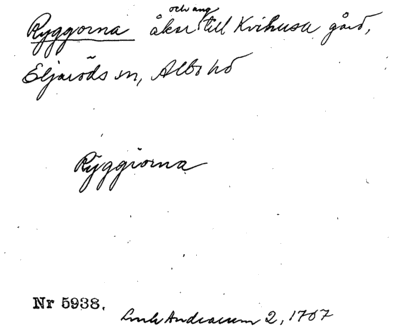 Ryggorna åkar och äng till Kvihusa gård,
Eljaröds sn, Albo hd
Ryggiorna
Nr 5938. Andrarum 2, 1707